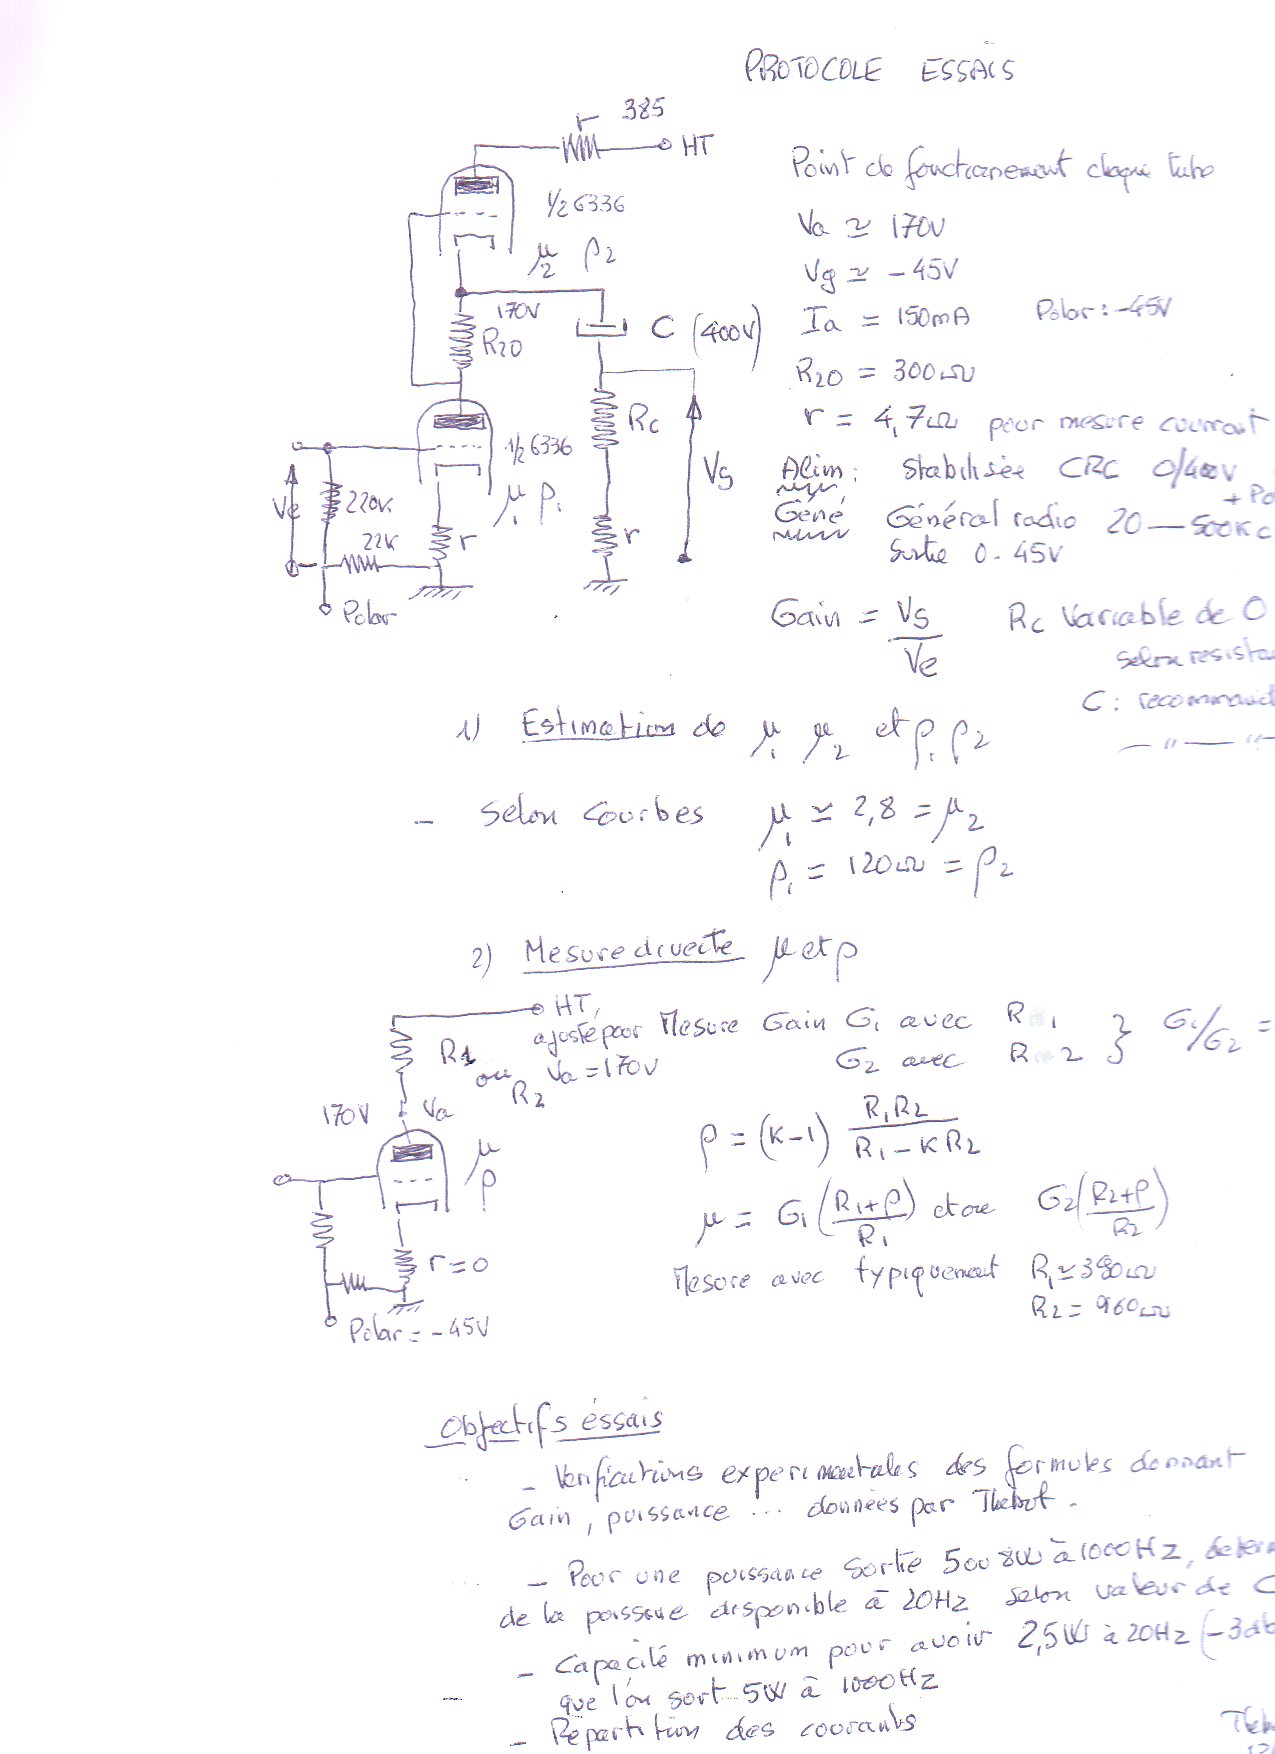 PROTOCOLE ESSAIS
385
r
HT
1/2 6336
μ2 ρ2
170V
R20
C (400V)
Rc
Vs
1/2 6336
μ1 ρ1
Ve
220K
22K
r
r
Polar
Point de fonctionement chaque tube
Va ≃ 170V
Vg ≃ -45V
Ia = 150mA Polar : -45V
R20 = 300Ω
r = 4,7Ω pour mesure courrant
Alim : Stabilisée CRC 0/400V
+ Po
Géné Général radio 20 — 500Kc
Sortie 0 - 45V
Gain = Vs/Ve Rc variable de 0
selon resista
C : recommand
— " — " —
1) Estimation de μ1 μ2 et ρ1 ρ2
- Selon courbes μ1 ≃ 2,8 = μ2
ρ1 = 120Ω = ρ2
2) Mesure directe μ et ρ
HT,
ajusté pour
Va = 170V
R1
ou
R2
170V Va
μ
ρ
r = 0
Polar = -45V
Mesure Gain G1 avec R 1
G2 avec R 2 } G1/G2 =
ρ = (K-1) R1R2/(R1 - KR2)
μ = G1 ((R1+ρ)/R1) et ou G2 ((R2+ρ)/R2)
Mesure avec typiquement R1 ≃ 390Ω
R2 = 960Ω
Objectifs éssais
- Verifications experimentales des formules donnant
Gain, puissance ... données par Thebot.
- Pour une puissance Sortie 5 ou 8W à 1000Hz, determ
de la puissance disponible à 20Hz selon valeur de C
- Capacité minimum pour avoir 2,5W à 20Hz (-3db
que l'on sort 5W à 1000Hz
- Répartition des courants